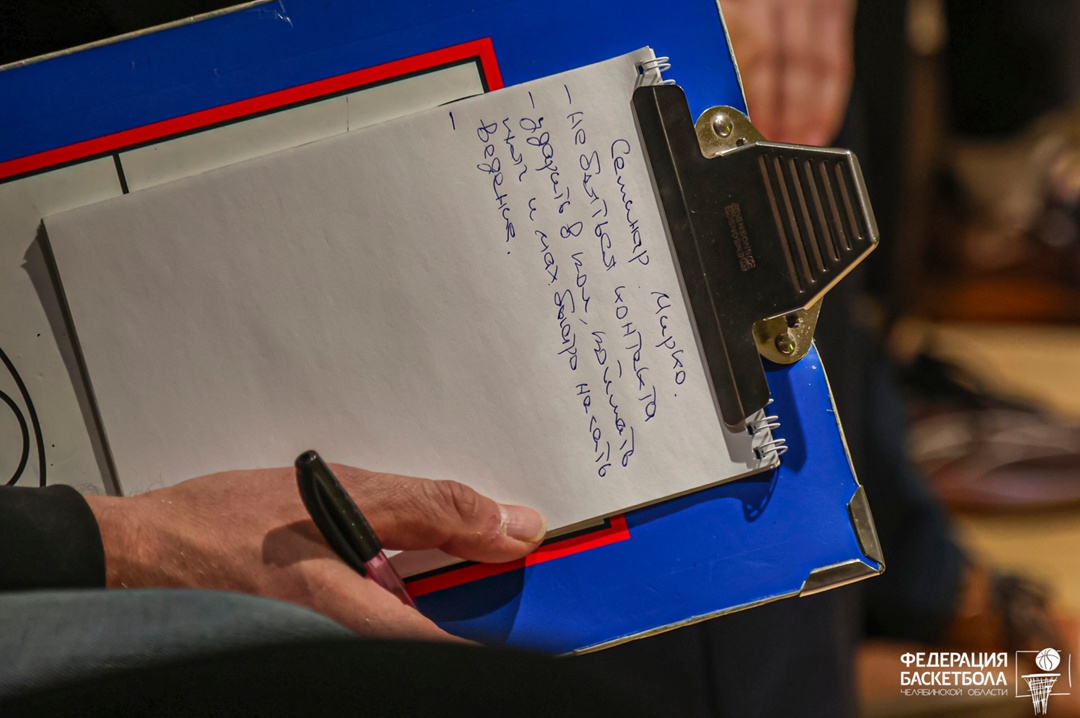 Семинар Мирко.
- не бояться контакта
- ударить в пол, поймать
мяч и мах быстро начать
ведение.
-
ФЕДЕРАЦИЯ
БАСКЕТБОЛА
ЧЕЛЯБИНСКОЙ ОБЛАСТИ